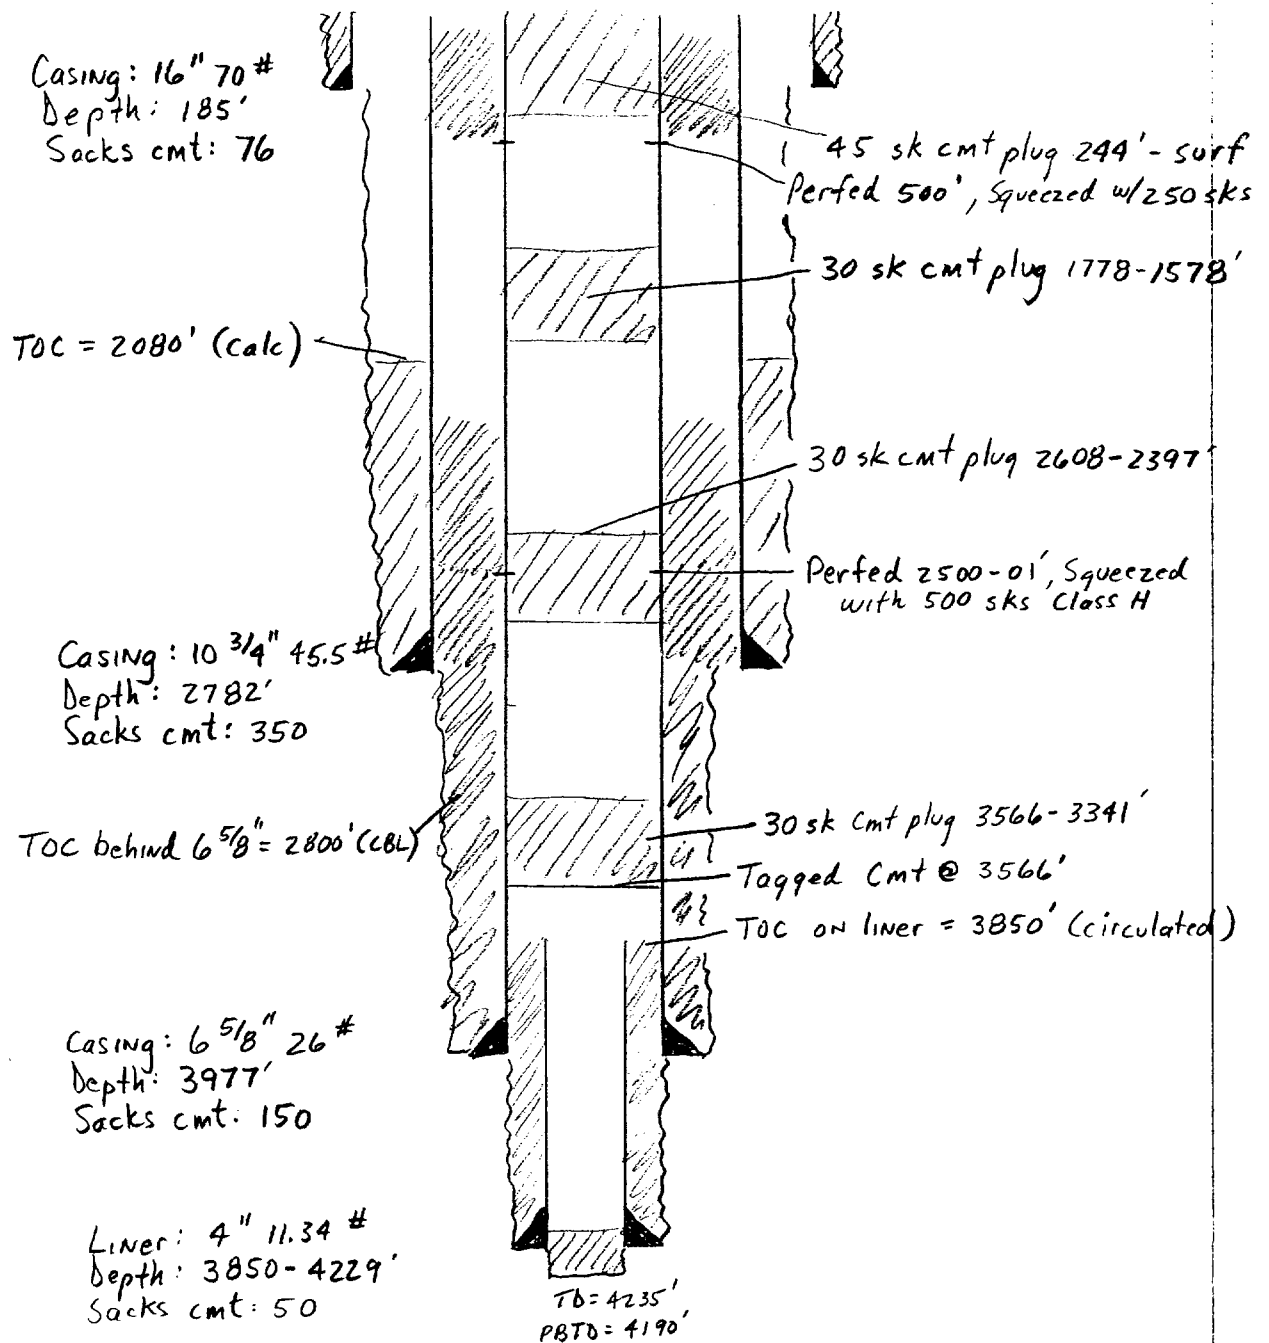 Casing: 16" 70#
Depth: 185'
Sacks cmt: 76
45 sk cmt plug 244'-surf
Perfed 500', Squeezed w/250 sks
30 sk cmt plug 1778-1578'
TOC = 2080' (Calc)
30 sk cmt plug 2608-2397'
Perfed 2500-01', Squeezed
with 500 sks Class H
Casing: 10 3/4" 45.5#
Depth: 2782'
Sacks cmt: 350
TOC behind 6 5/8" = 2800' (CBL)
30 sk Cmt plug 3566-3341'
Tagged Cmt @ 3566'
TOC ON liner = 3850' (circulated)
Casing: 6 5/8" 26#
Depth: 3977'
Sacks cmt: 150
Liner: 4" 11.34#
Depth: 3850-4229'
Sacks cmt: 50
TD=4235'
PBTD=4190'